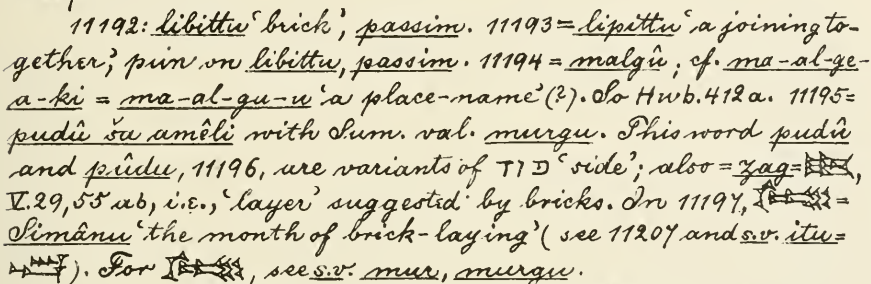 11192: libittu ‘brick’, passim. 11193 = lipittu ‘a joining to-
gether’; pun on libittu, passim. 11194 = malgû; cf. ma-al-ge-
a-ki = ma-al-gu-u ‘a place-name’(?). So Hwb. 412a. 11195 =
pudû ša amêli with Sum. val. murgu. This word pudû
and pûdu, 11196, are variants of ‘side’; also = zag =
V. 29, 55 ab, i.e., ‘layer’ suggested by bricks. In 11197, =
Simânu ‘the month of brick-laying’ (see 11207 and s.v. itu =
). For , see s.v. mur, murgu.